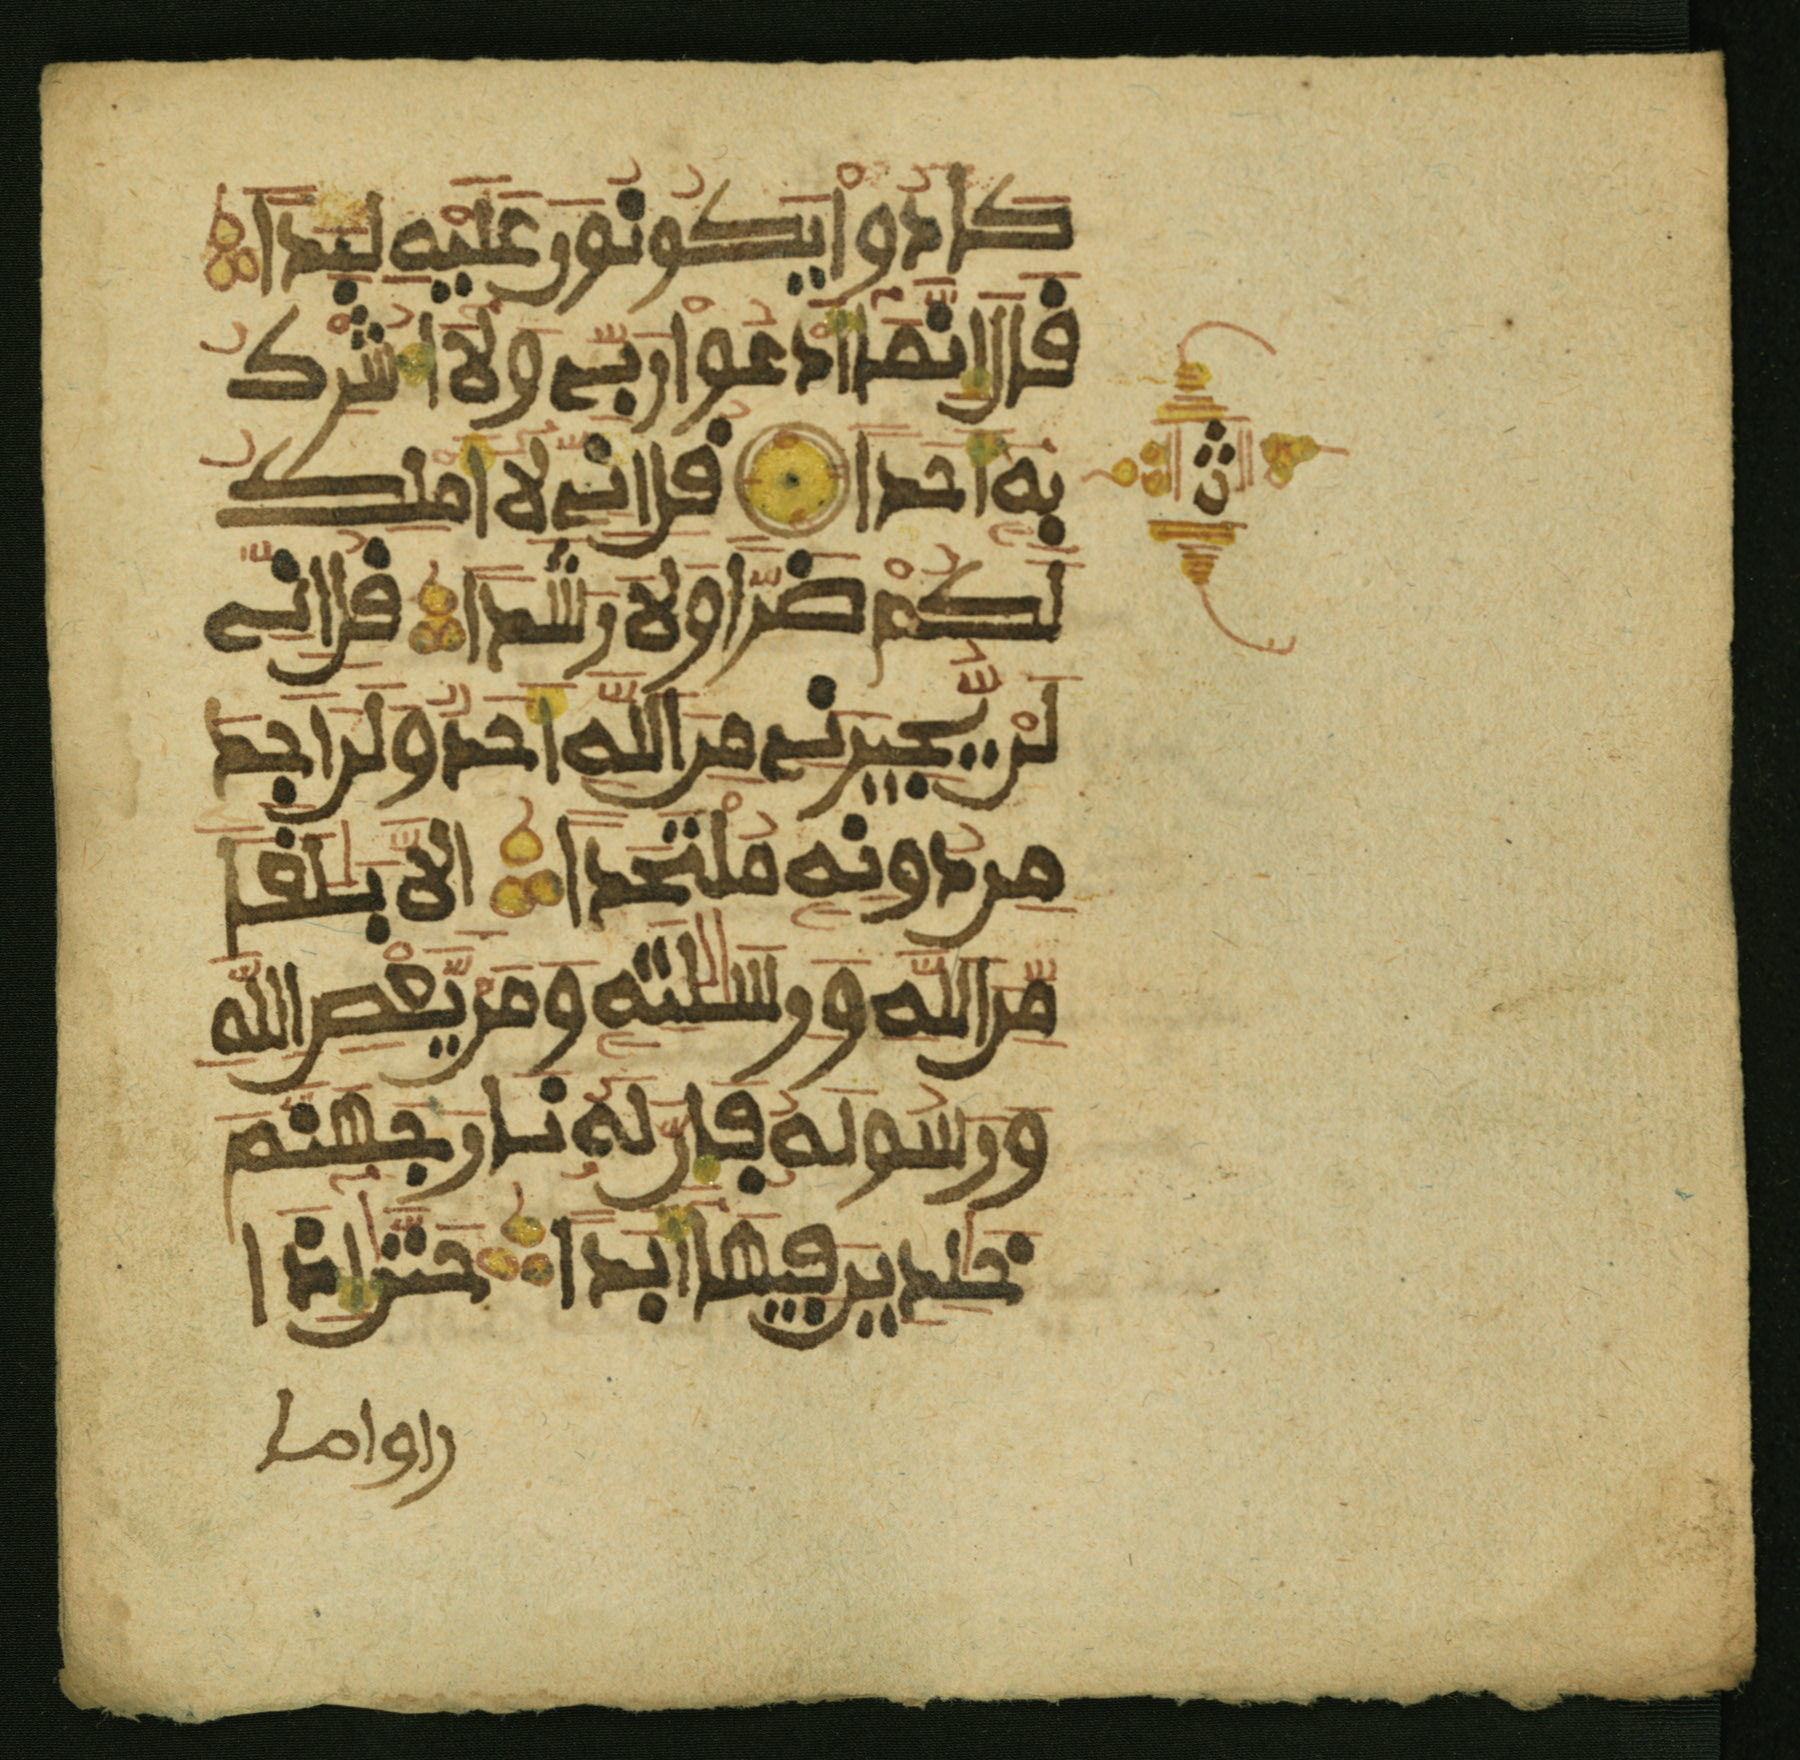 كَادُوا يَكُونُونَ عَلَيْهِ لِبَدًا
قَالَ إِنَّمَا أَدْعُوا رَبِّي وَلَا أُشْرِكُ
بِهِ أَحَدًا قُلْ إِنِّي لَا أَمْلِكُ
لَكُمْ ضَرًّا وَلَا رَشَدًا قُلْ إِنِّي
لَنْ يُّجِيرَنِي مِنَ اللَّهِ أَحَدٌ وَلَنْ أَجِدَ
مِن دُونِهِ مُلْتَحَدًا إِلَّا بَلَٰغًا
مِّنَ اللَّهِ وَرِسَٰلَٰتِهِ وَمَنْ يَّعْصِ اللَّهَ
وَرَسُولَهُ فَإِنَّ لَهُ نَارَ جَهَنَّمَ
خَٰلِدِينَ فِيهَا أَبَدًا حَتَّىٰ إِذَا
راوا ما
ث